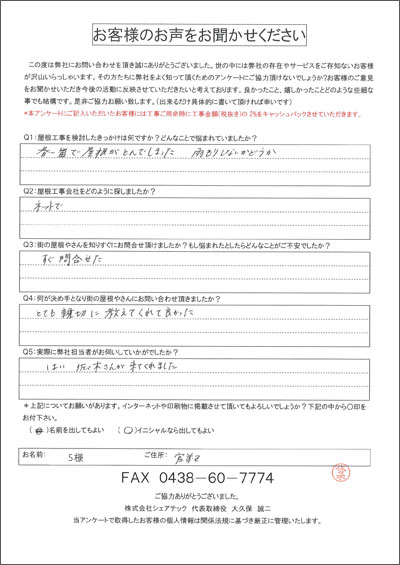 お客様のお声をお聞かせください
この度は弊社にお問い合わせを頂き誠にありがとうございました。世の中には弊社の存在やサービスをご存知ないお客様
が沢山いらっしゃいます。その方たちに弊社をよく知って頂くためのアンケートにご協力頂けないでしょうか?お客様のご意見
をお聞かせいただき今後の活動に反映させていただきたいと考えております。良かったこと、嬉しかったことどのような些細な
事でも結構です。是非ご協力お願い致します。(出来るだけ具体的に書いて頂ければ幸いです)
*本アンケートにご記入いただいたお客様には工事ご用命時に工事金額(税抜き)の 2%をキャッシュバックさせていただきます。
Q1:屋根工事を検討したきっかけは何ですか?どんなことで悩まれていましたか?
春一番で屋根がとんでしました 雨もりしないかどうか
Q2:屋根工事会社をどのように探しましたか?
ネットで
Q3:街の屋根やさんを知りすぐにお問合せ頂けましたか?もし悩まれたとしたらどんなことがご不安でしたか?
すぐ問合せた
Q4:何が決め手となり街の屋根やさんにお問い合わせ頂きましたか?
とても親切に教えてくれて良かった
Q5:実際に弊社担当者がお伺いしていかがでしたか?
はい 佐々木さんが来てくれました
*上記についてお願いがあります。インターネットや印刷物に掲載させて頂いてもよろしいでしょうか?下記の中から〇印を
お付け下さい。
( )名前を出してもよい (〇)イニシャルなら出してもよい
お名前: S様 ご住所:
FAX 0438-60-7774
ご協力ありがとうございました。
株式会社シェアテック 代表取締役 大久保 誠二
当アンケートで取得したお客様の個人情報は関係法規に基づき厳正に管理いたします。